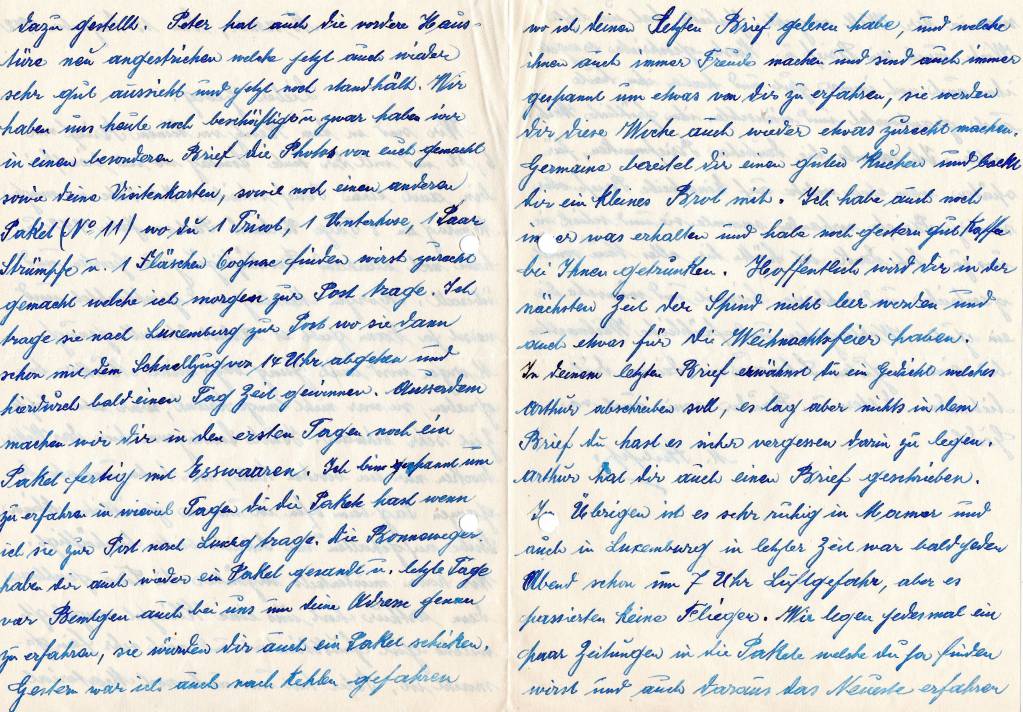 dazu gestellt. Peter hat auch die vordere Haus-
türe neu angestrichen welche jetzt auch wieder
sehr gut aussieht und jetzt noch standhält. Wir
haben uns heute noch beschäftigt u zwar haben wir
in einen besonderen Brief die Photos von euch gemacht
sowie deine Visitenkarten, sowie noch einen anderen
Paket (No 11) wo du 1 Tricot, 1 Unterhose, 1 Paar
Strümpfe u. 1 Fläschen Cognac finden wirst zurecht
gemacht welche ich morgen zur Post trage. Ich
trage sie nach Luxemburg zur Post wo sie dann
schon mit dem Schnellzug von 14 Uhr abgehen und
hierdurch bald einen Tag Zeit gewinnen. Ausserdem
machen wir dir in den ersten Tagen noch ein
Paket fertig mit Esswaaren. Ich bin gespannt um
zu erfahren in wieviel Tagen du die Pakete hast wenn
ich sie zur Post nach Luxbg trage. Die Bonneweger
haben dir auch wieder ein Paket gesandt u. letzte Tage
war auch bei uns um deine Adresse genau
zu erfahren, sie würden dir auch ein Paket schicken.
Gestern war ich auch nach Kehlen gefahren
wo ich deinen letzten Brief gelesen habe, und welche
ihnen auch immer Freude machen und sind auch immer
gespannt um etwas von dir zu erfahren, sie werden
dir diese Woche auch wieder etwas zurecht machen.
Germaine bereitet dir einen guten Kuchen und backt
dir ein kleines Brot mit. Ich habe auch noch
immer was erhalten und habe noch gestern gut Kaffe
bei Ihnen getrunken. Hoffentlich wird dir in der
nächsten Zeit der Spind nicht leer werden und
auch etwas für die Weihnachtsfeier haben.
In deinem letzten Brief erwähnst du ein Gedicht welches
Arthur abschreiben soll, es lag aber nichts in dem
Brief du hast es sicher vergessen darin zu legen.
Arthur hat dir auch einen Brief geschrieben.
Im Übrigen ist es sehr ruhig in Mamer und
auch in Luxemburg in letzter Zeit war bald jeden
Abend schon um 7 Uhr Luftgefahr, aber es
passierten keine Flieger. Wir legen jedesmal ein
paar Zeitungen in die Pakete welche du ja finden
wirst und auch daraus das Neueste erfahren